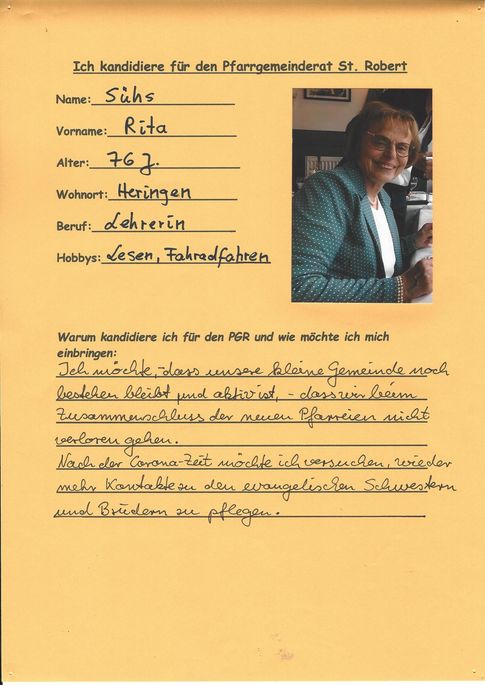 Ich kandidiere für den Pfarrgemeinderat St. Robert
Name: Sühs
Vorname: Rita
Alter: 76 J.
Wohnort: Heringen
Beruf: Lehrerin
Hobbys: Lesen, Fahradfahren
Warum kandidiere ich für den PGR und wie möchte ich mich
einbringen:
Ich möchte, -dass unsere kleine Gemeinde noch
bestehen bleibt und aktiv ist, - dass wir beim
Zusammenschluss der neuen Pfarreien nicht
verloren gehen.
Nach der Corona-Zeit möchte ich versuchen, wieder
mehr Kontakte zu den evangelischen Schwestern
und Brüdern zu pflegen.